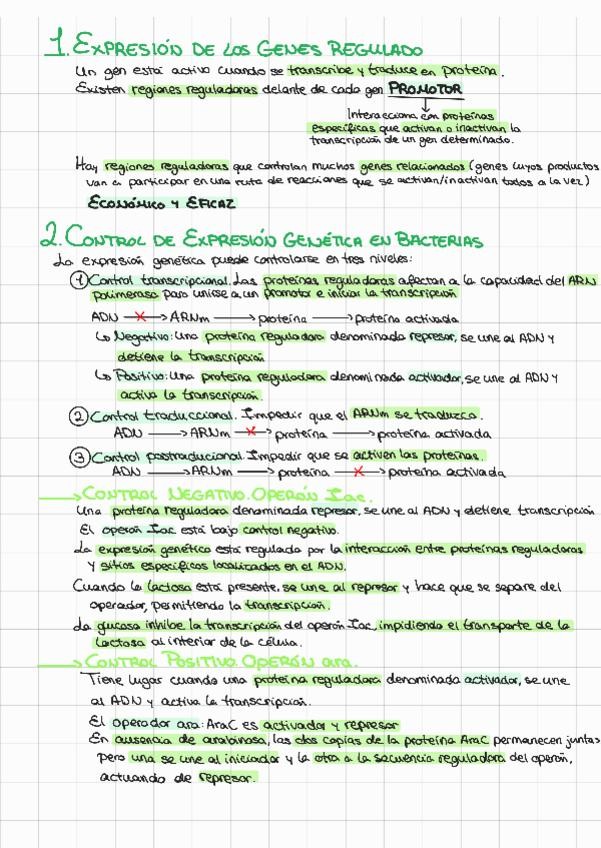 1. EXPRESIÓN DE LOS GENES REGULADO
Un gen está activo cuando se transcribe y traduce en proteína.
Existen regiones reguladoras delante de cada gen PROMOTOR
Interacciona con proteínas
específicas que activan o inactivan la
transcripción de un gen determinado.
Hay regiones reguladoras que controlan muchos genes relacionados (genes cuyos productos
van a participar en una ruta de reacciones que se activan/inactivan todos a la vez)
ECONÓMICO Y EFICAZ
2. CONTROL DE EXPRESIÓN GENÉTICA EN BACTERIAS
La expresión genética puede controlarse en tres niveles:
1 Control transcripcional. Las proteínas reguladoras afectan a la capacidad del ARN
polimerasa para unirse a un promotor e iniciar la transcripción
ADN ⟶ ARNm ⟶ proteína ⟶ proteína activada
↳ Negativo: Una proteína reguladora denominada represor, se une al ADN y
detiene la transcripción
↳ Positivo: Una proteína reguladora denominada activador, se une al ADN y
activa la transcripción.
2 Control traduccional. Impedir que el ARNm se traduzca.
ADN ⟶ ARNm ⟶ proteína ⟶ proteína activada
3 Control postraducional. Impedir que se activen las proteínas.
ADN ⟶ ARNm ⟶ proteína ⟶ proteína activada
⟶ CONTROL NEGATIVO. OPERÓN lac.
Una proteína reguladora denominada represor, se une al ADN y detiene transcripción
El operón lac está bajo control negativo.
La expresión genética está regulada por la interacción entre proteínas reguladoras
y sitios específicos localizados en el ADN.
Cuando la lactosa está presente, se une al represor y hace que se separe del
operador, permitiendo la transcripción.
La glucosa inhibe la transcripción del operón lac, impidiendo el transporte de la
lactosa al interior de la célula.
⟶ CONTROL POSITIVO. OPERÓN ara.
Tiene lugar cuando una proteína reguladora denominada activador, se une
al ADN y activa la transcripción.
El operador ara: AraC es activador y represor
En ausencia de arabinosa, las dos copias de la proteína AraC permanecen juntas
pero una se une al iniciador y la otra a la secuencia reguladora del operón,
actuando de represor.